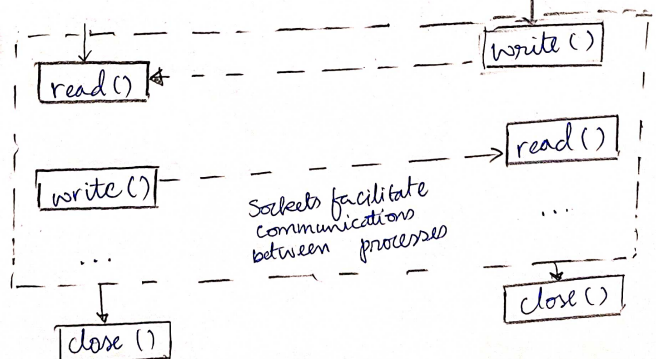 write()
read()
read()
write()
Sockets facilitate
communications
between processes
...
...
close()
close ()